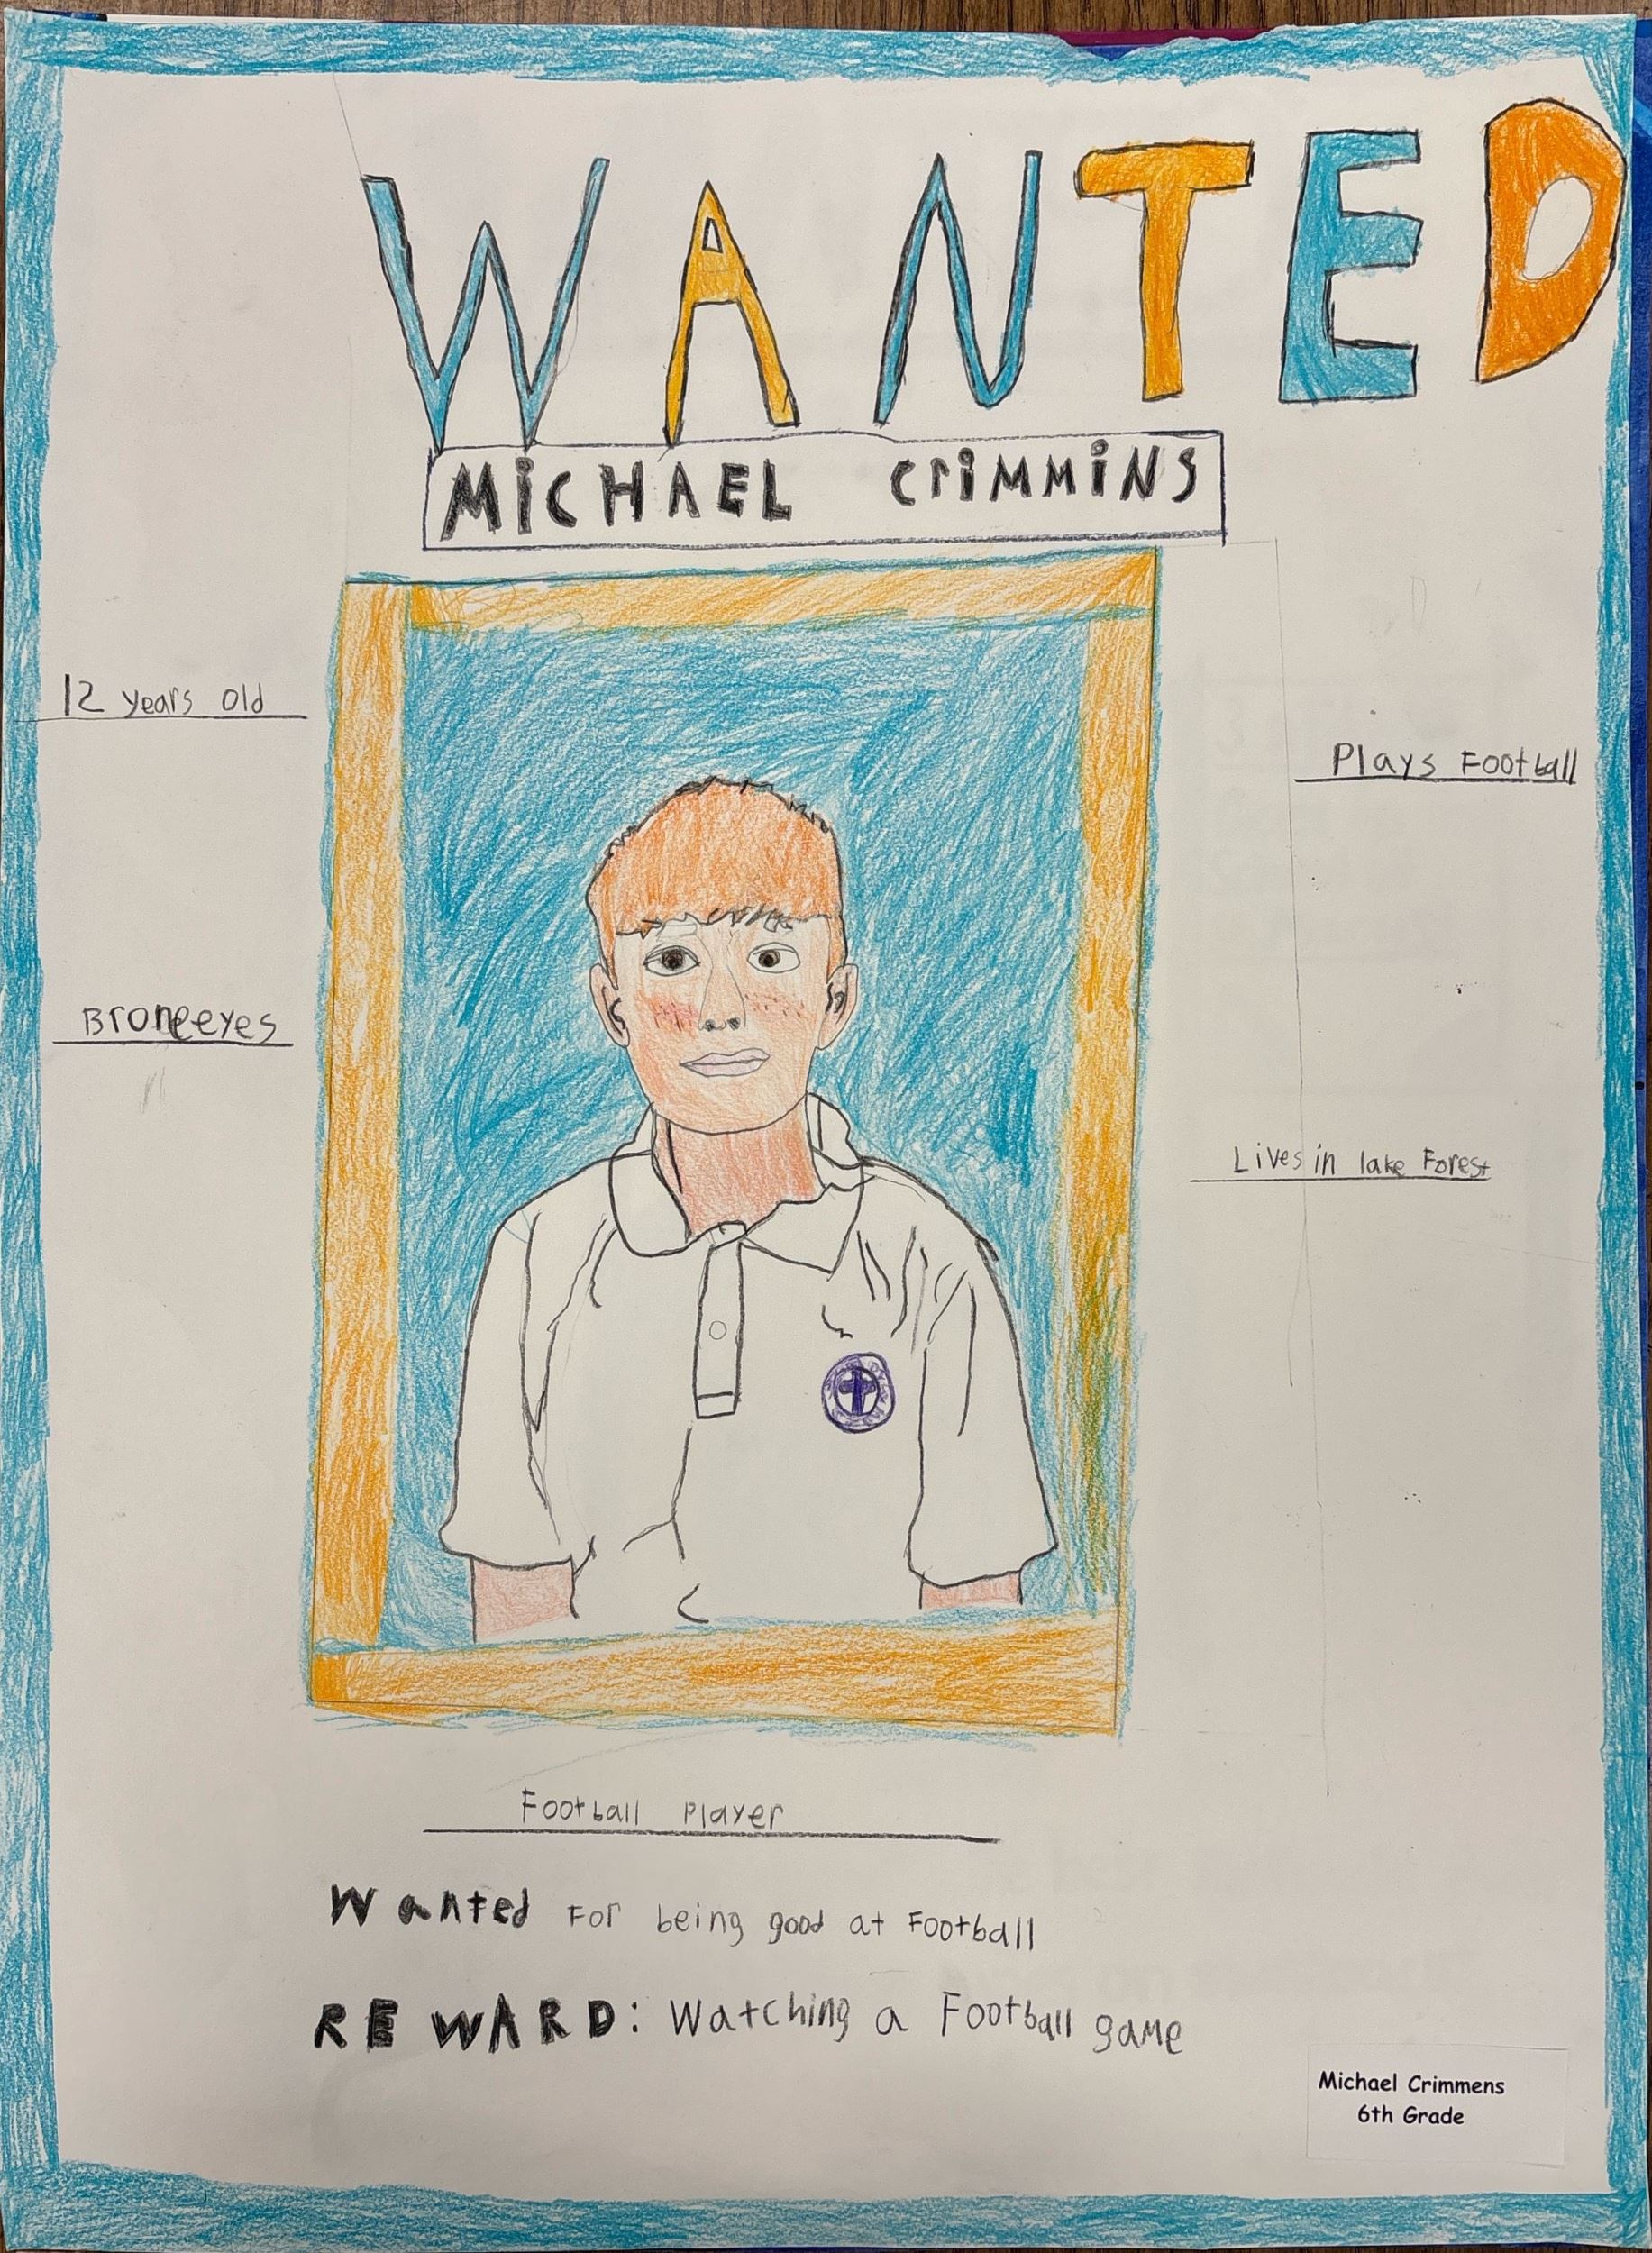 WANTED
MiCHAEL CriMMiNS
12 years old
Plays Football
Broneeyes
Lives in lake Forest
Football Player
Wanted For being good at Football
REWARD: Watching a Football game
Michael Crimmens
6th Grade